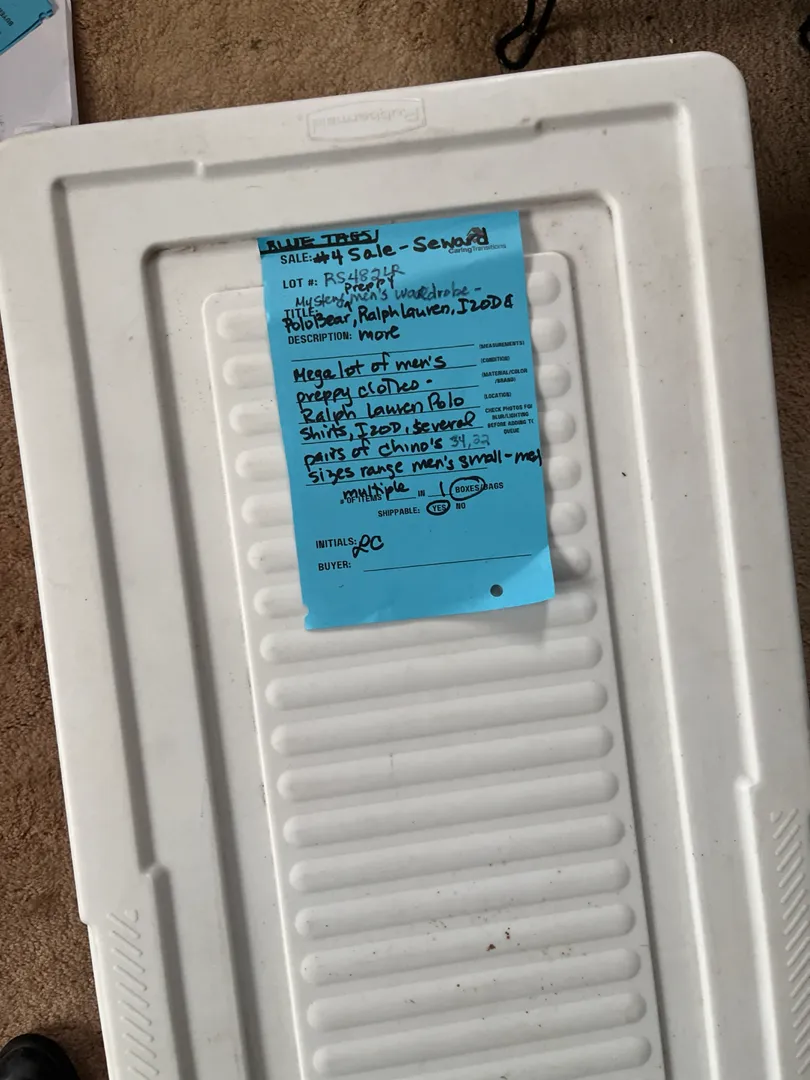 Rubbermaid
BLUE TAGS!
SALE: #4 Sale - Seward
CaringTransitions
LOT #: RS482LR
Preppy
Mystery men's wardrobe -
TITLE:
Polo Bear, Ralph Lauren, IZOD &
DESCRIPTION: more
(MEASUREMENTS)
Mega lot of men's
(CONDITION)
preppy clothes -
(MATERIAL/COLOR
/BRAND)
Ralph Lauren Polo
(LOCATION)
Shirts, IZOD, several
CHECK PHOTOS FOR
BLUR/LIGHTING
BEFORE ADDING TO
QUEUE
pairs of chino's 34,32
sizes range men's small - med
multiple
# OF ITEMS IN 1 BOXES/BAGS
SHIPPABLE: YES NO
INITIALS: LC
BUYER: